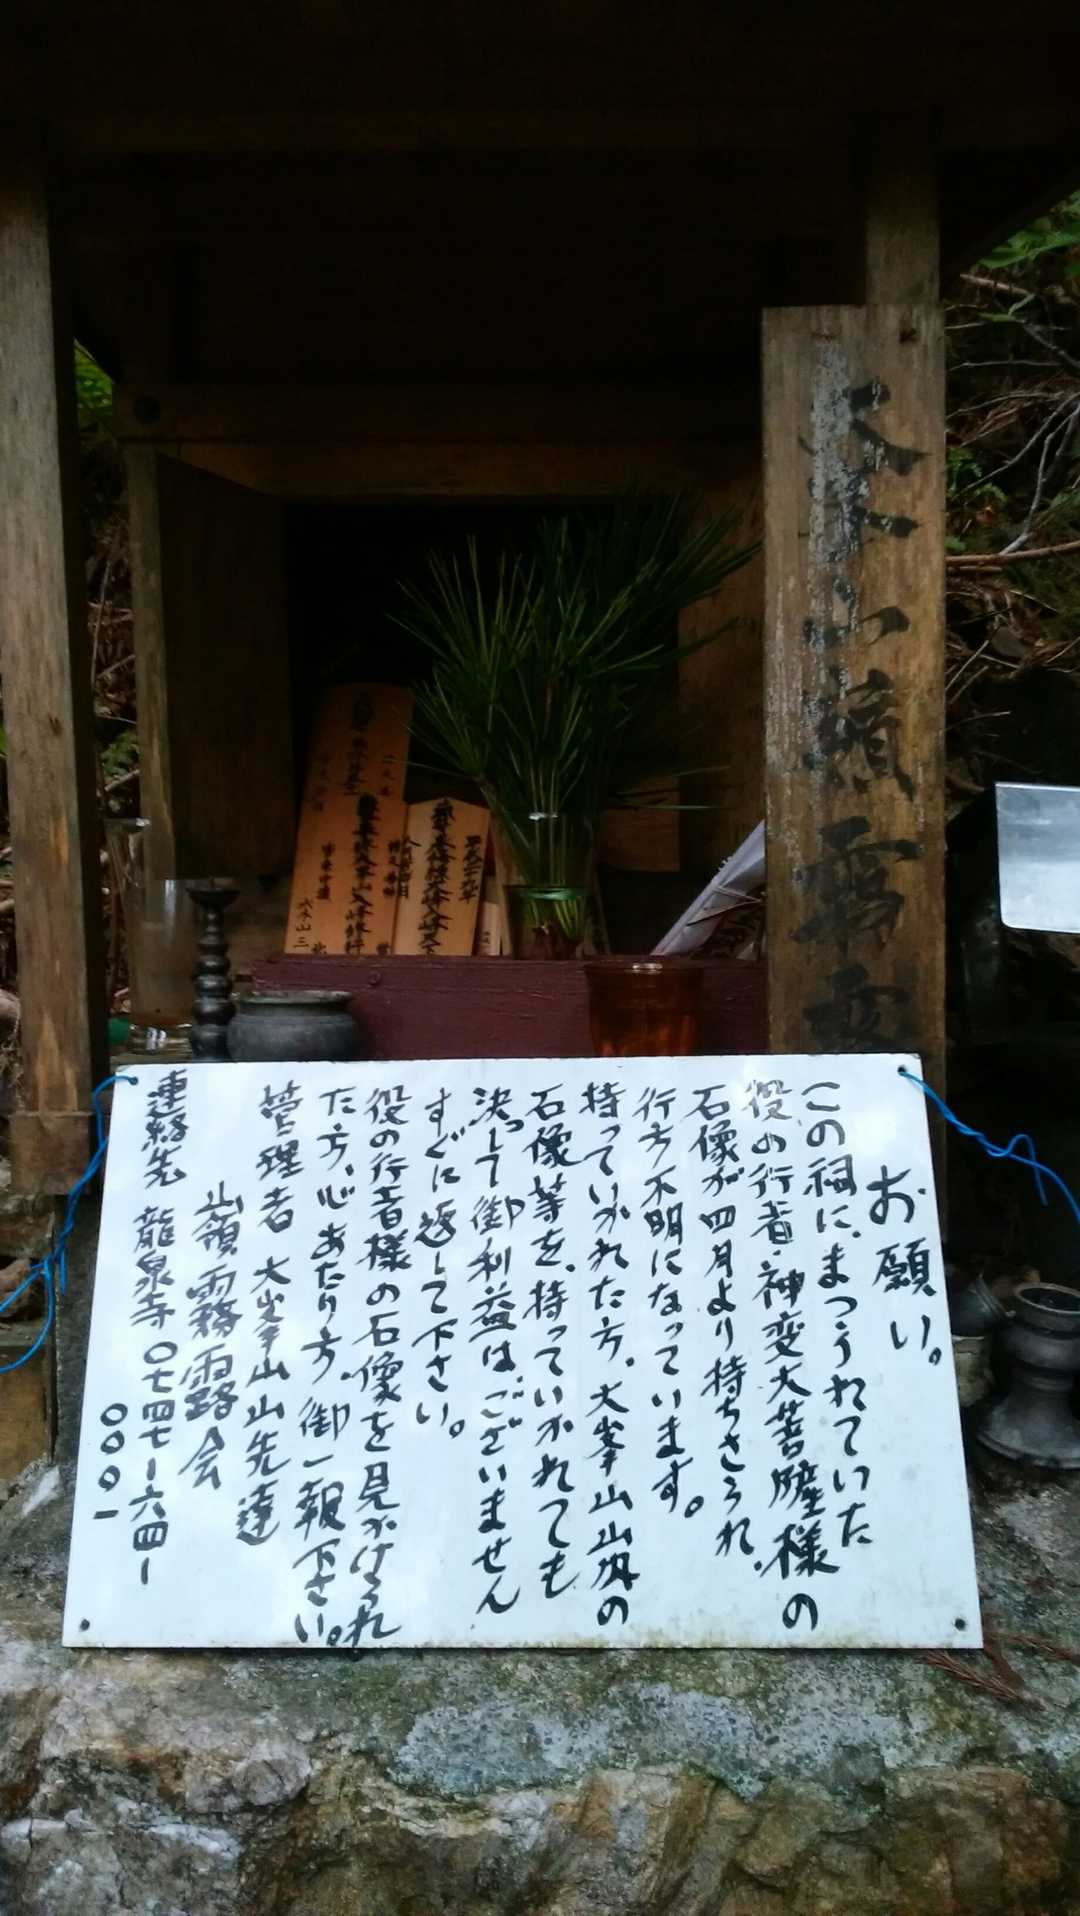 お願い。
この祠に、まつられていた
役の行者・神変大菩薩様の
石像が四月より持ちさられ、
行方不明になっています。
持っていかれた方、大峯山山内の
石像等を、持っていかれても
決して御利益は、ございません
すぐに返して下さい。
役の行者様の石像を見かけられ
た方、心あたり方、御一報下さい。
管理者 大峯山山先達
山嶺霧露会
連絡先 龍泉寺 〇七四七ー六四ー
〇〇〇一
峯山嶺霧露